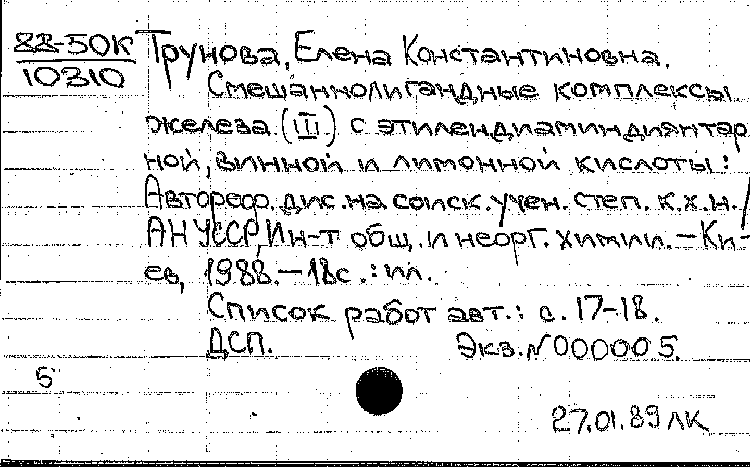 88-50К Трунова, Елена Константиновна.
10310 Смешаннолигандные комплексы
железа (III) с этилендиаминдиянтар
ной, винной и лимонной кислоты:
Автореф. дис. на соиск. учен. степ. к.х.н./
АН УССР, Ин-т общ. и неорг. химии. — Ки-
ев, 1988. — 18с. : ил.
Список работ авт.: с. 17-18.
ДСП. Экз. N 000005.
5
27.01.89 ЛК